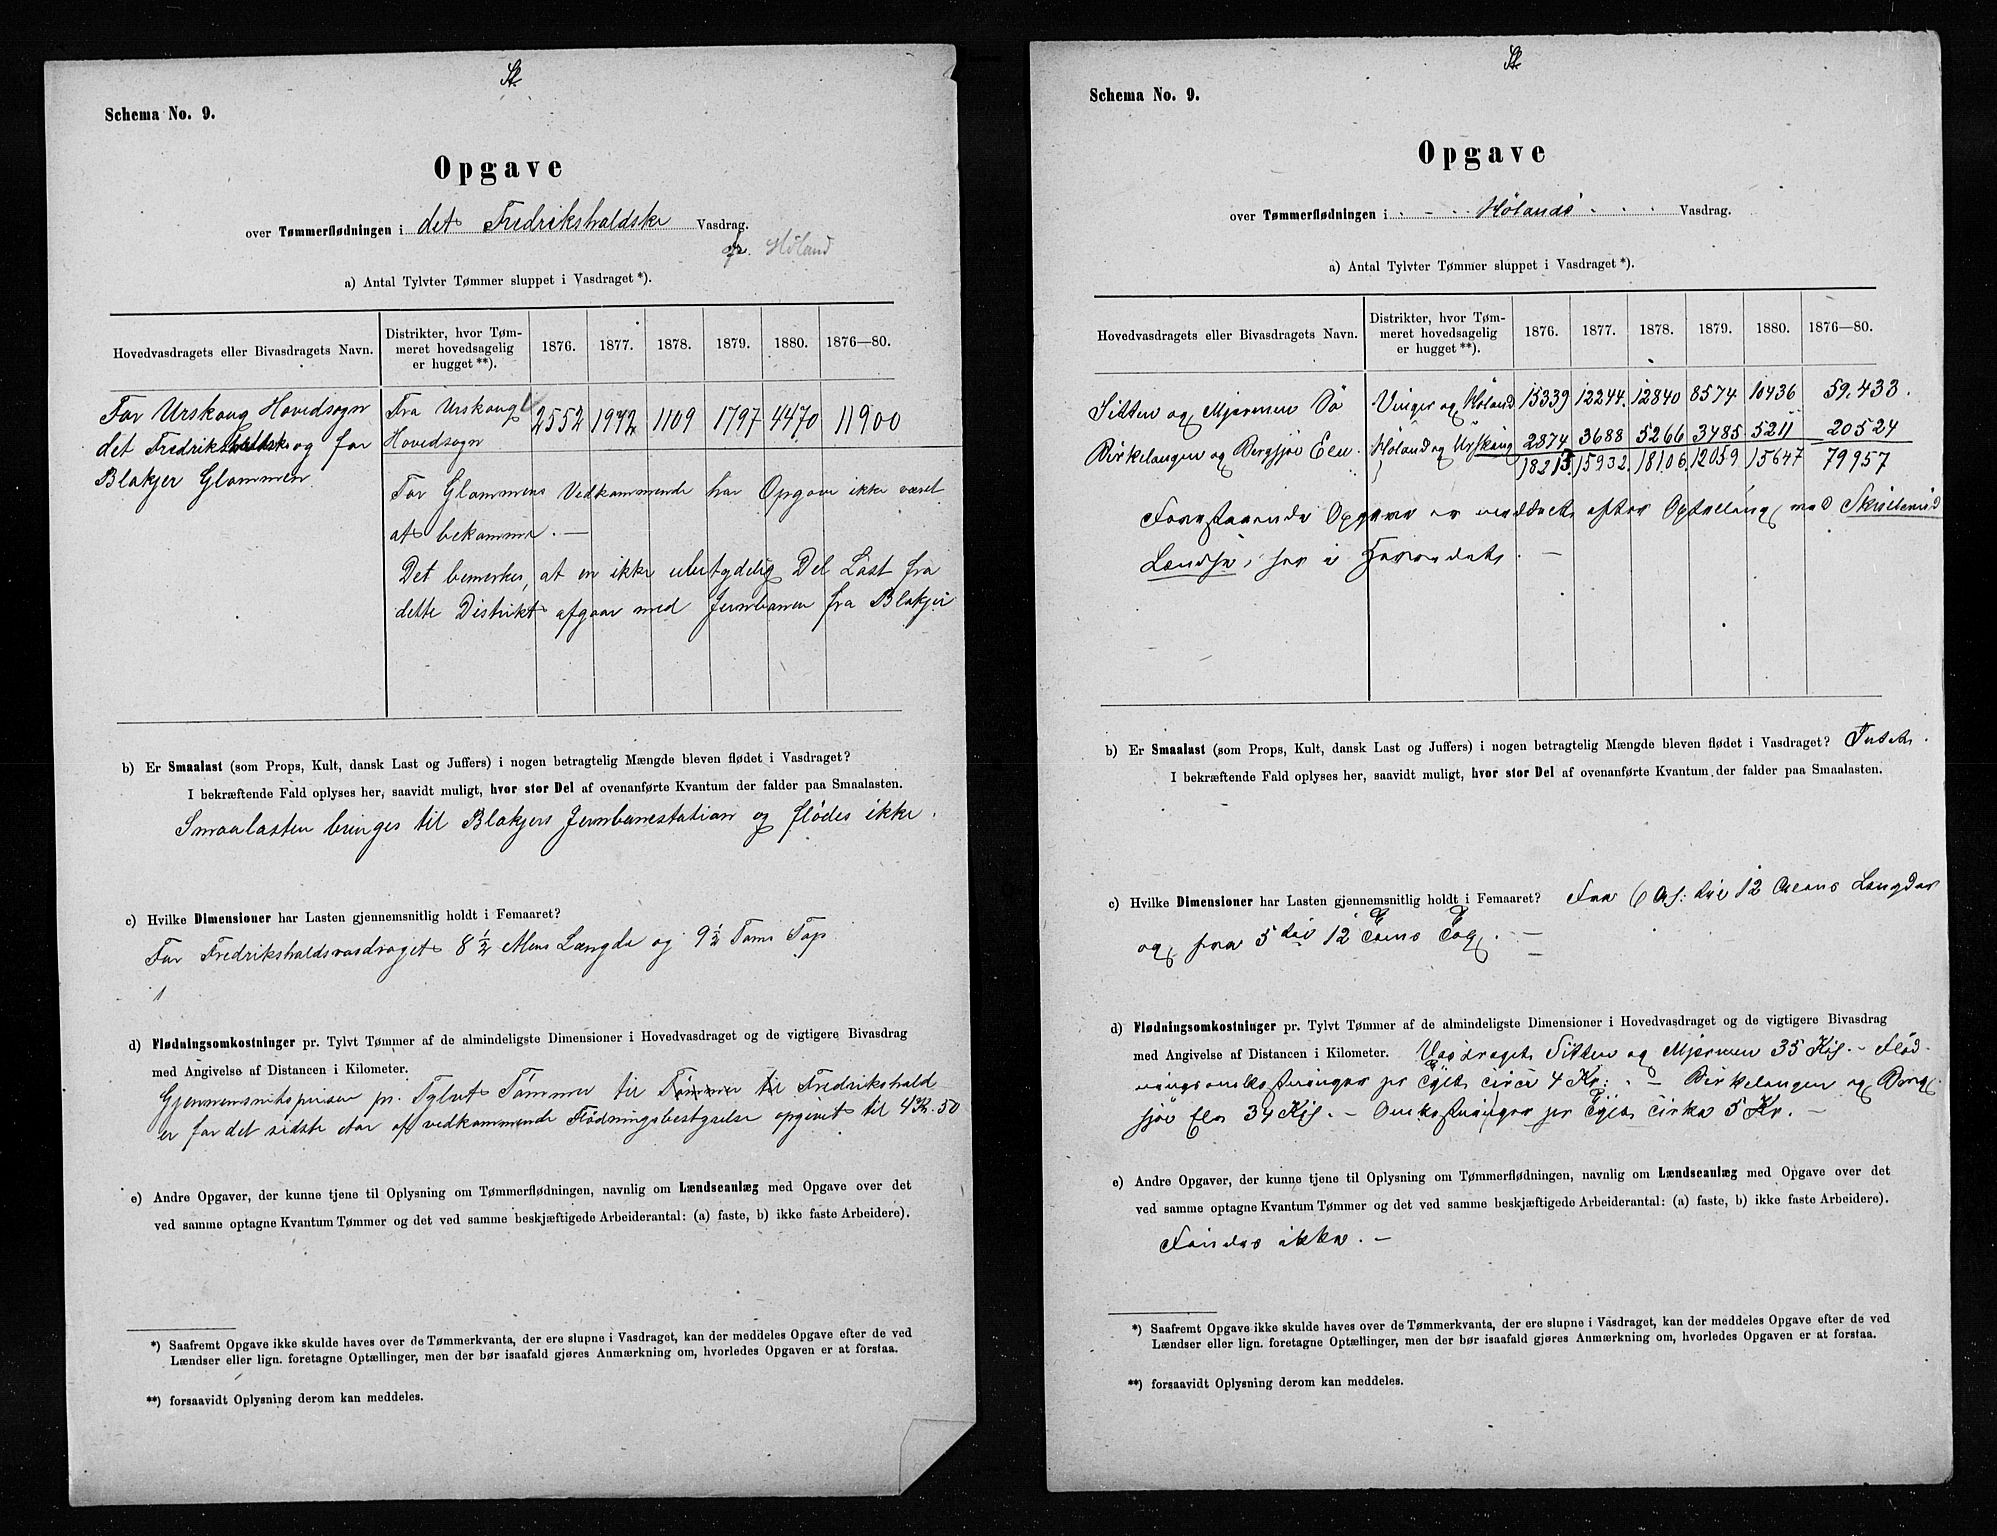 St
Schema No. 9.
Opgave
over Tømmerflødningen i det Fredrikshaldske Vasdrag.
cfr. Høland
a) Antal Tylvter Tømmer sluppet i Vasdraget *).
Hovedvasdragets eller Bivasdragets Navn. Distrikter, hvor Tømmeret hovedsagelig er hugget **). 1876. 1877. 1878. 1879. 1880. 1876—80.
For Urskoug Hovedsogn Fra Urskoug 2552 1972 1109 1797 4470 11900
det Fredrikshaldske og for Hovedsogn
Blakjer Glommen
For Glommens Vedkommende har Opgave ikke været
at bekomme. —
Det bemerkes, at en ikke ubetydelig Del Last fra
dette Distrikt afgaar med Jernbanen fra Blakjer
b) Er Smaalast (som Props, Kult, dansk Last og Juffers) i nogen betragtelig Mængde bleven flødet i Vasdraget?
I bekræftende Fald oplyses her, saavidt muligt, hvor stor Del af ovenanførte Kvantum der falder paa Smaalasten.
Smaalasten bringes til Blakjers Jernbanestation og flødes ikke.
c) Hvilke Dimensioner har Lasten gjennemsnitlig holdt i Femaaret?
For Fredrikshaldsvasdraget 8 1/2 Alens Længde og 9 1/2 Toms Top
d) Flødningsomkostninger pr. Tylvt Tømmer af de almindeligste Dimensioner i Hovedvasdraget og de vigtigere Bivasdrag
med Angivelse af Distancen i Kilometer.
Gjennemsnitsprisen pr. Tylvt Tømmer til Tømmer til Fredrikshald
er for det sidste Aar af vedkommende Flødningsbestyrelse opgivet til 4 Kr. 50
e) Andre Opgaver, der kunne tjene til Oplysning om Tømmerflødningen, navnlig om Lændseanlæg med Opgave over det
ved samme optagne Kvantum Tømmer og det ved samme beskjæftigede Arbeiderantal: (a) faste, b) ikke faste Arbeidere).
*) Saafremt Opgave ikke skulde haves over de Tømmerkvanta, der ere slupne i Vasdraget, kan der meddeles Opgave efter de ved
Lændser eller lign. foretagne Optællinger, men der bør isaafald gjøres Anmærkning om, hvorledes Opgaven er at forstaa.
**) forsaavidt Oplysning derom kan meddeles.
St
Schema No. 9.
Opgave
over Tømmerflødningen i . - . . Hølands . . . Vasdrag.
a) Antal Tylvter Tømmer sluppet i Vasdraget *).
Hovedvasdragets eller Bivasdragets Navn. Distrikter, hvor Tømmeret hovedsagelig er hugget **). 1876. 1877. 1878. 1879. 1880. 1876—80.
Sitten og Mjermen Sø Vinger og Høland 15339 12244. 12840 8574 10436 59,433.
Birkelangen og Bergsjøe Elv. Høland og Urskoug 2874 3688 5266 3485 5211 20524
18213. 15932. 18106 12059. 15647 79957
Forestaaende Opgave er meddelt efter Optælling ved Skulerud
Lændse, her i Herredet. —
b) Er Smaalast (som Props, Kult, dansk Last og Juffers) i nogen betragtelig Mængde bleven flødet i Vasdraget? Intet.
I bekræftende Fald oplyses her, saavidt muligt, hvor stor Del af ovenanførte Kvantum der falder paa Smaalasten.
c) Hvilke Dimensioner har Lasten gjennemsnitlig holdt i Femaaret? Fra 6 Al: til 12 Alens Længder
og fra 5 til 12 Toms Top. —
d) Flødningsomkostninger pr. Tylvt Tømmer af de almindeligste Dimensioner i Hovedvasdraget og de vigtigere Bivasdrag
med Angivelse af Distancen i Kilometer. Vasdraget Sitten og Mjermen 35 Kil. — Flød-
ningsomkostninger pr Tylt circa 4 Kr: . — Birkelangen og Berg-
sjøe Elv 34 Kil. — Omkostninger pr Tylt cirka 5 Kr. —
e) Andre Opgaver, der kunne tjene til Oplysning om Tømmerflødningen, navnlig om Lændseanlæg med Opgave over det
ved samme optagne Kvantum Tømmer og det ved samme beskjæftigede Arbeiderantal: (a) faste, b) ikke faste Arbeidere).
Findes ikke. —
*) Saafremt Opgave ikke skulde haves over de Tømmerkvanta, der ere slupne i Vasdraget, kan der meddeles Opgave efter de ved
Lændser eller lign. foretagne Optællinger, men der bør isaafald gjøres Anmærkning om, hvorledes Opgaven er at forstaa.
**) forsaavidt Oplysning derom kan meddeles.